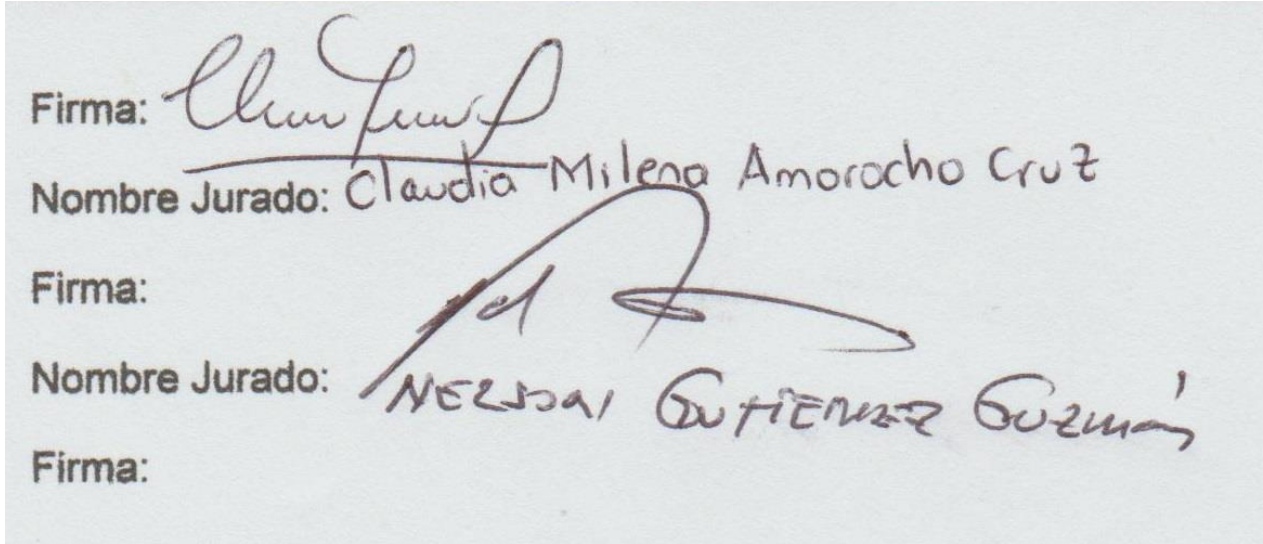 Firma:
Nombre Jurado: Claudia Milena Amorocho Cruz
Firma:
Nombre Jurado: NELSON GUTIERREZ GUZMÁN
Firma: